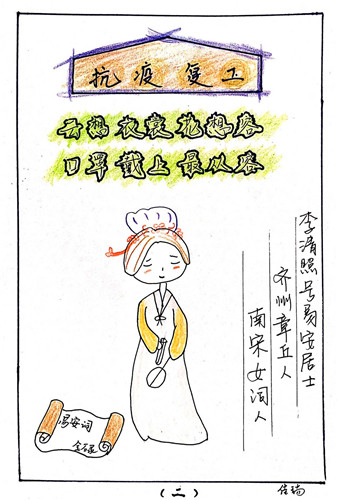 抗疫复工
云想衣裳花想容
口罩戴上最从容
李清照号易安居士
齐州章丘人
南宋女词人
易安词
金石录
(二)